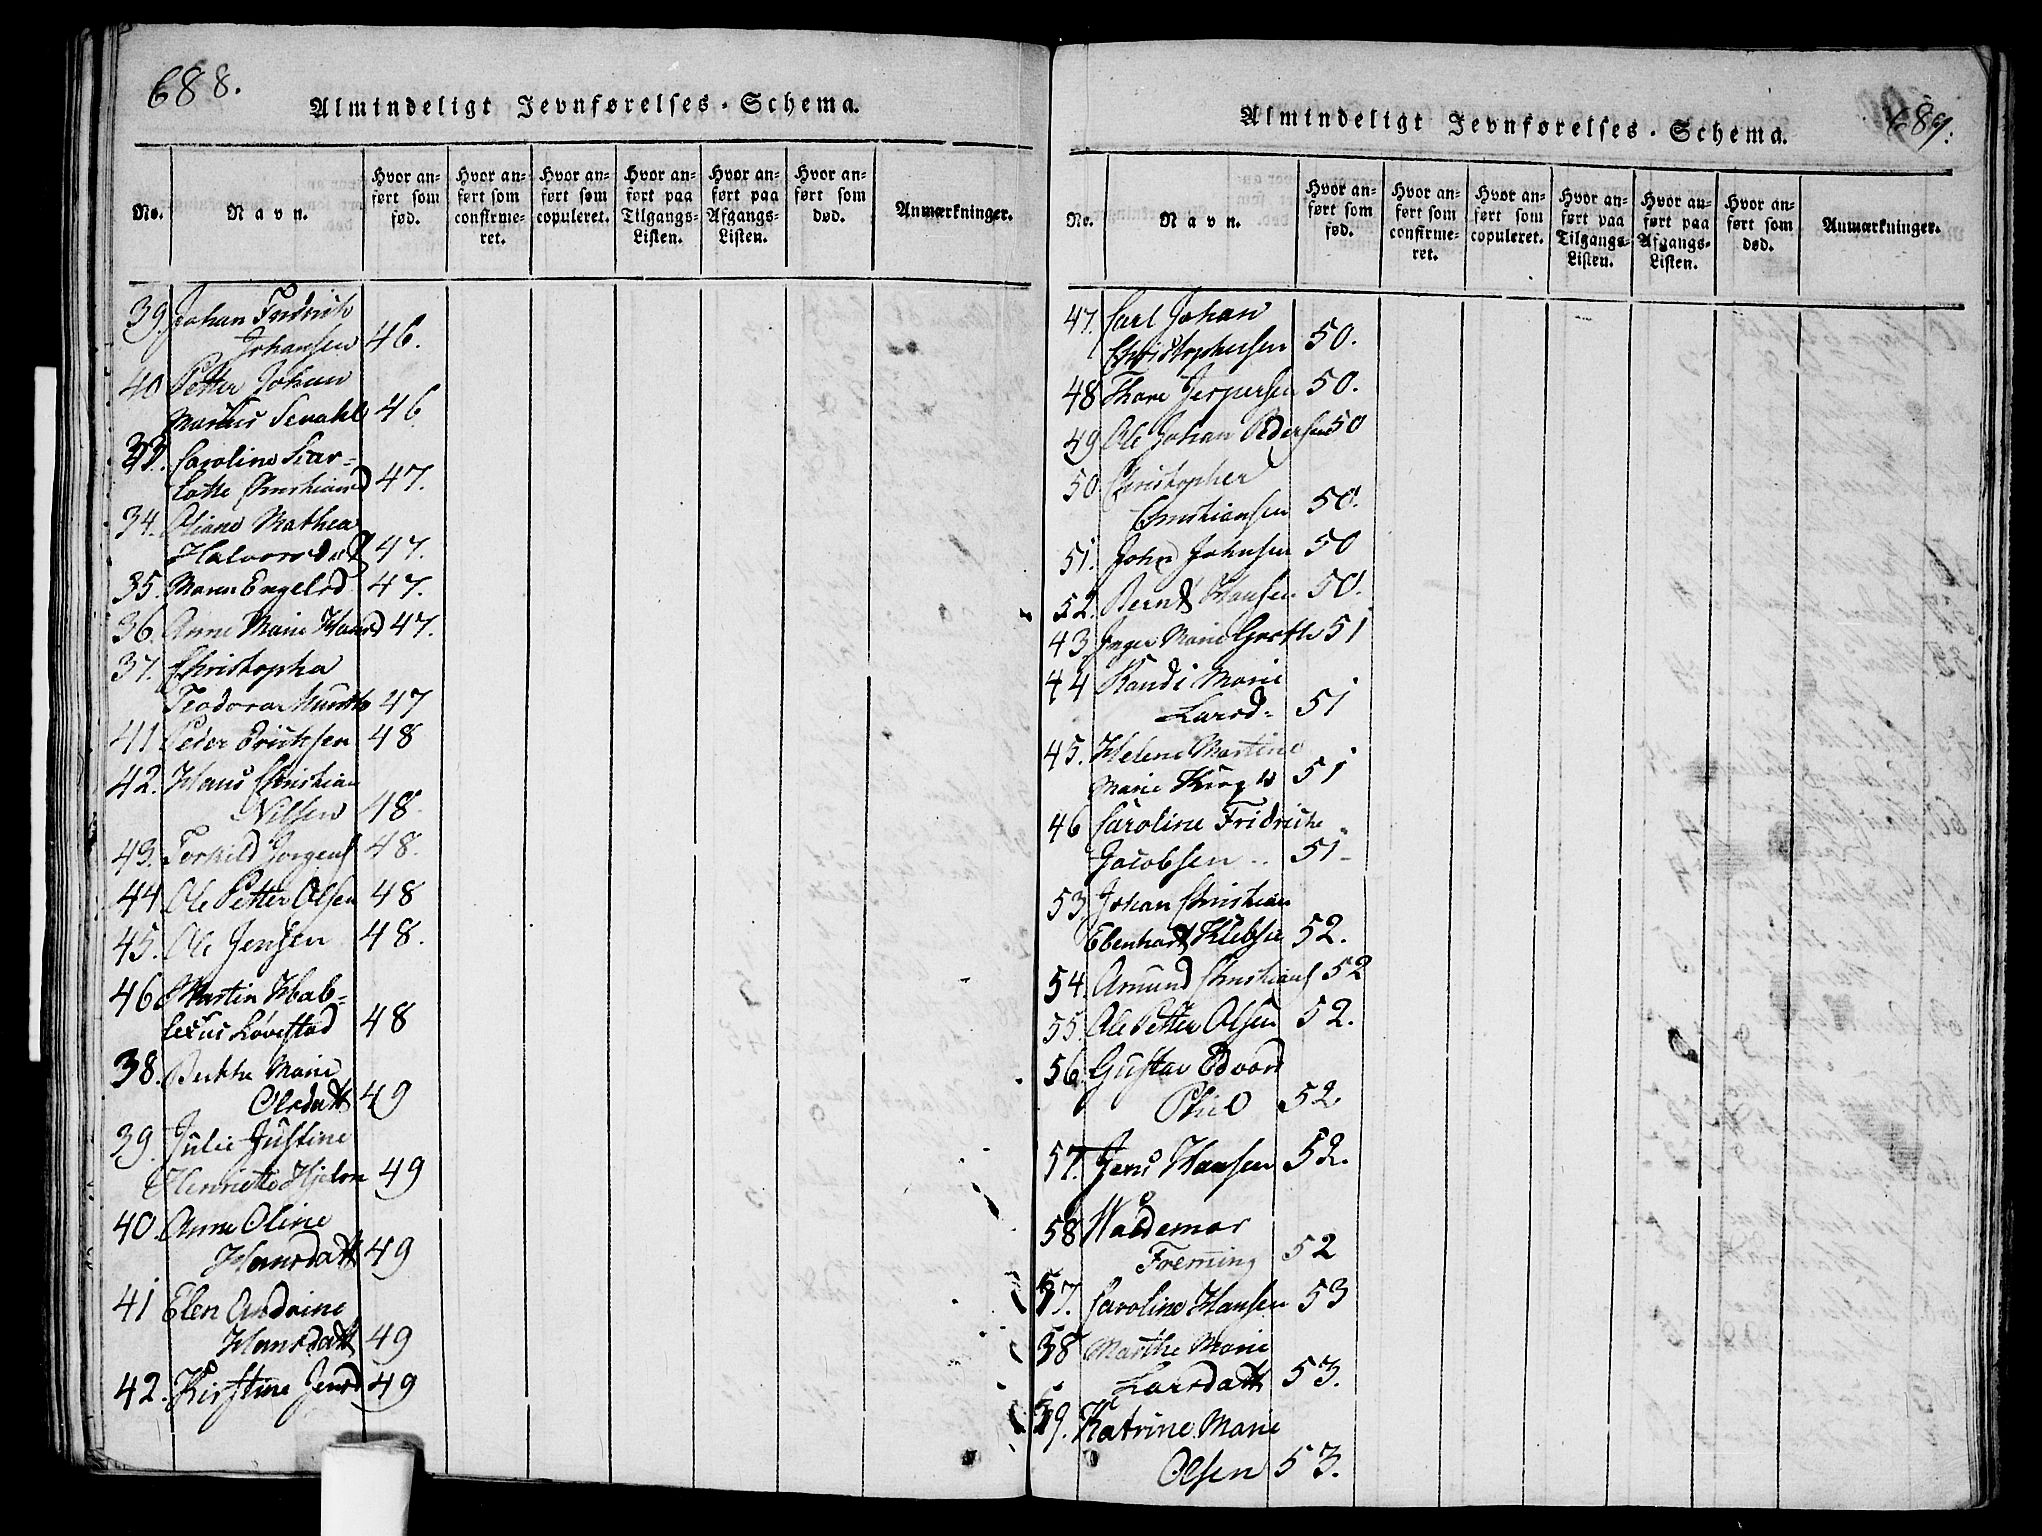 688.
Almindeligt Jevnførelses-Schema.
No.
Navn.
Hvor anført som fød.
Hvor anført som confirmeret.
Hvor anført som copuleret.
Hvor anført paa Tilgangs-Listen.
Hvor anført paa Afgangs-Listen.
Hvor anført som død.
Anmærkninger.
39. Johan Fredrich
Johansen 46.
40 Petter Johan
Marius 46.
33. Caroline Scar-
lotte Christiansd 47.
34. Oliane Mathea
Halvorsdatt 47.
35. Maren Engelsd 47.
36. Anne Marie Hansd 47.
37. Christopha
Teodora Munthe 47
41 Peder Erichsen 48
42. Hans Christian
Nilsen 48.
43. Torkild Jorgens 48.
44 Ole Petter Olsen 48
45. Ole Jensen 48.
46 Martin Hab-
Løvestad 48
38. Berthe Marie
Olsdatt 49
39. Julie Justine
Henriette Hjelm 49
40. Anne Oline
Hansdatt 49
41 Elen Andrine
Hansdatt 49
42. Kirstine Jensd 49
689.
Almindeligt Jevnførelses-Schema.
No.
Navn.
Hvor anført som fød.
Hvor anført som confirmeret.
Hvor anført som copuleret.
Hvor anført paa Tilgangs-Listen.
Hvor anført paa Afgangs-Listen.
Hvor anført som død.
Anmærkninger.
47. Carl Johan
Christophersen 50.
48 Thore Jespersen 50.
49 Ole Johan Pedersen 50
50 Christopher
Christiansen 50.
51. John Johnsen 50
52. Bernt Hansen 50.
43. Inger Marie Grothe 51
44 Randi Marie
Larsd- 51
45. Helene Martine
Marie 51
46 Caroline Fridriche
Jacobsen 51-
53. Johan Christian
Ebenhard 52.
54. Amund Christians 52
55. Ole Petter Olsen 52.
56. Gustav Edvard
52.
57. Jens Hansen 52.
58 Waldemar
Fleming 52
57. Caroline Hansen 53
58 Marthe Marie
Larsdatt 53.
59. Katrine Marie
Olsen 53.